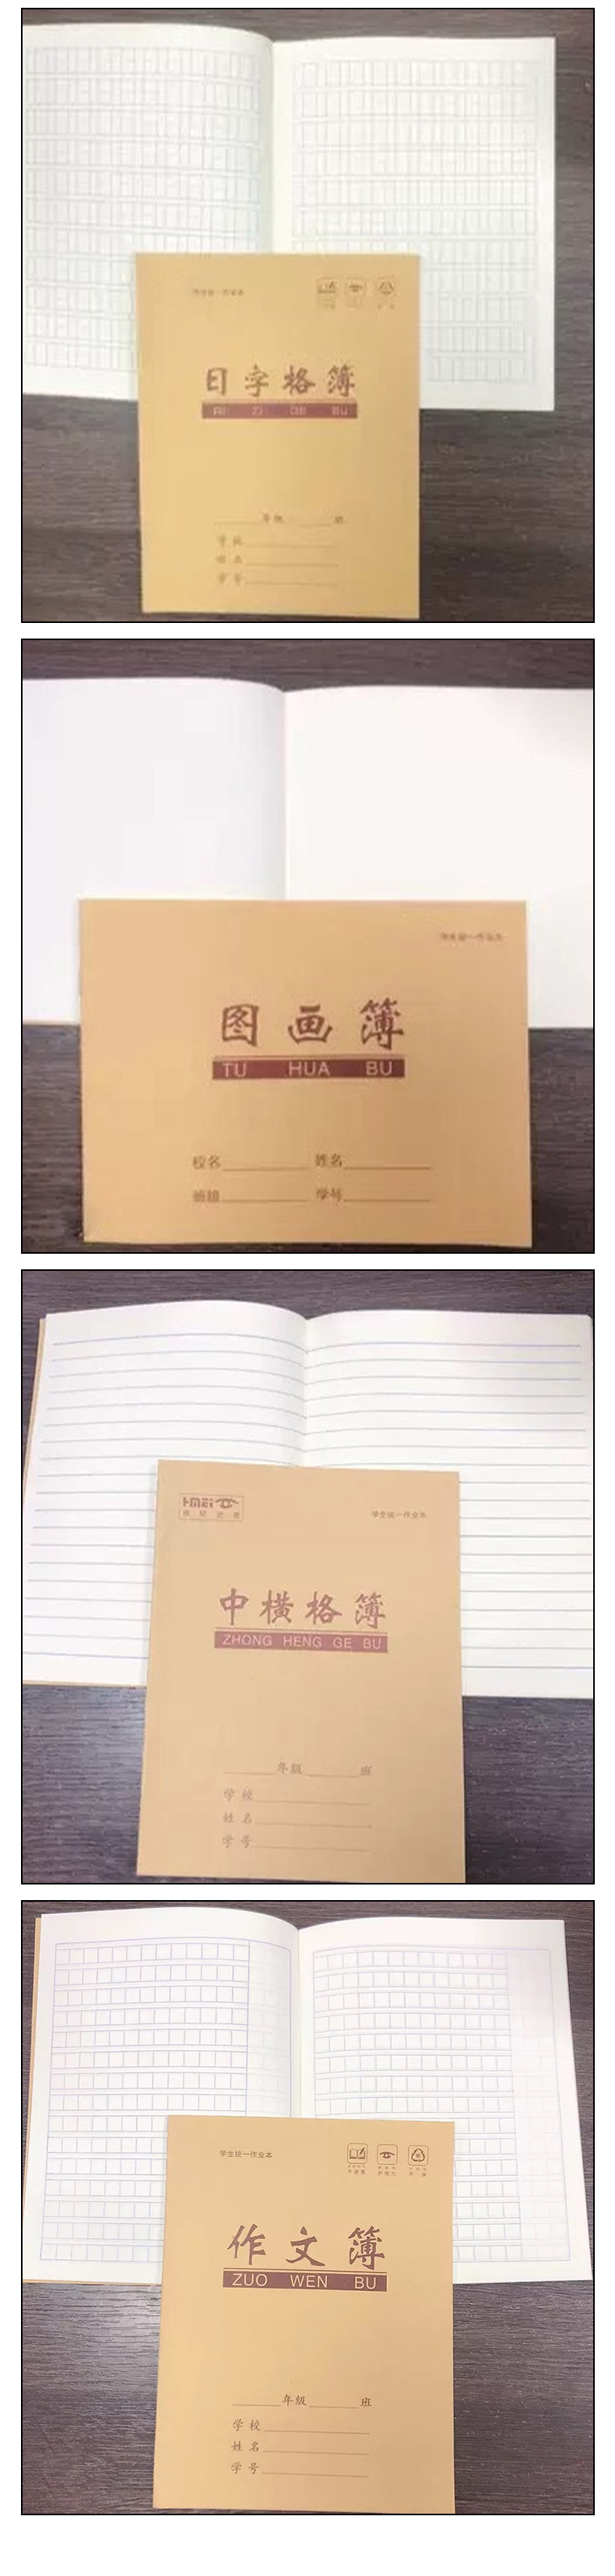 学生统一作业本
日字格簿
RI ZI GE BU
年级 班
学校
姓名
学号
学生统一作业本
图画簿
TU HUA BU
校名 姓名
班级 学号
学生统一作业本
中横格簿
ZHONG HENG GE BU
年级 班
学校
姓名
学号
学生统一作业本
作文簿
ZUO WEN BU
年级 班
学校
姓名
学号